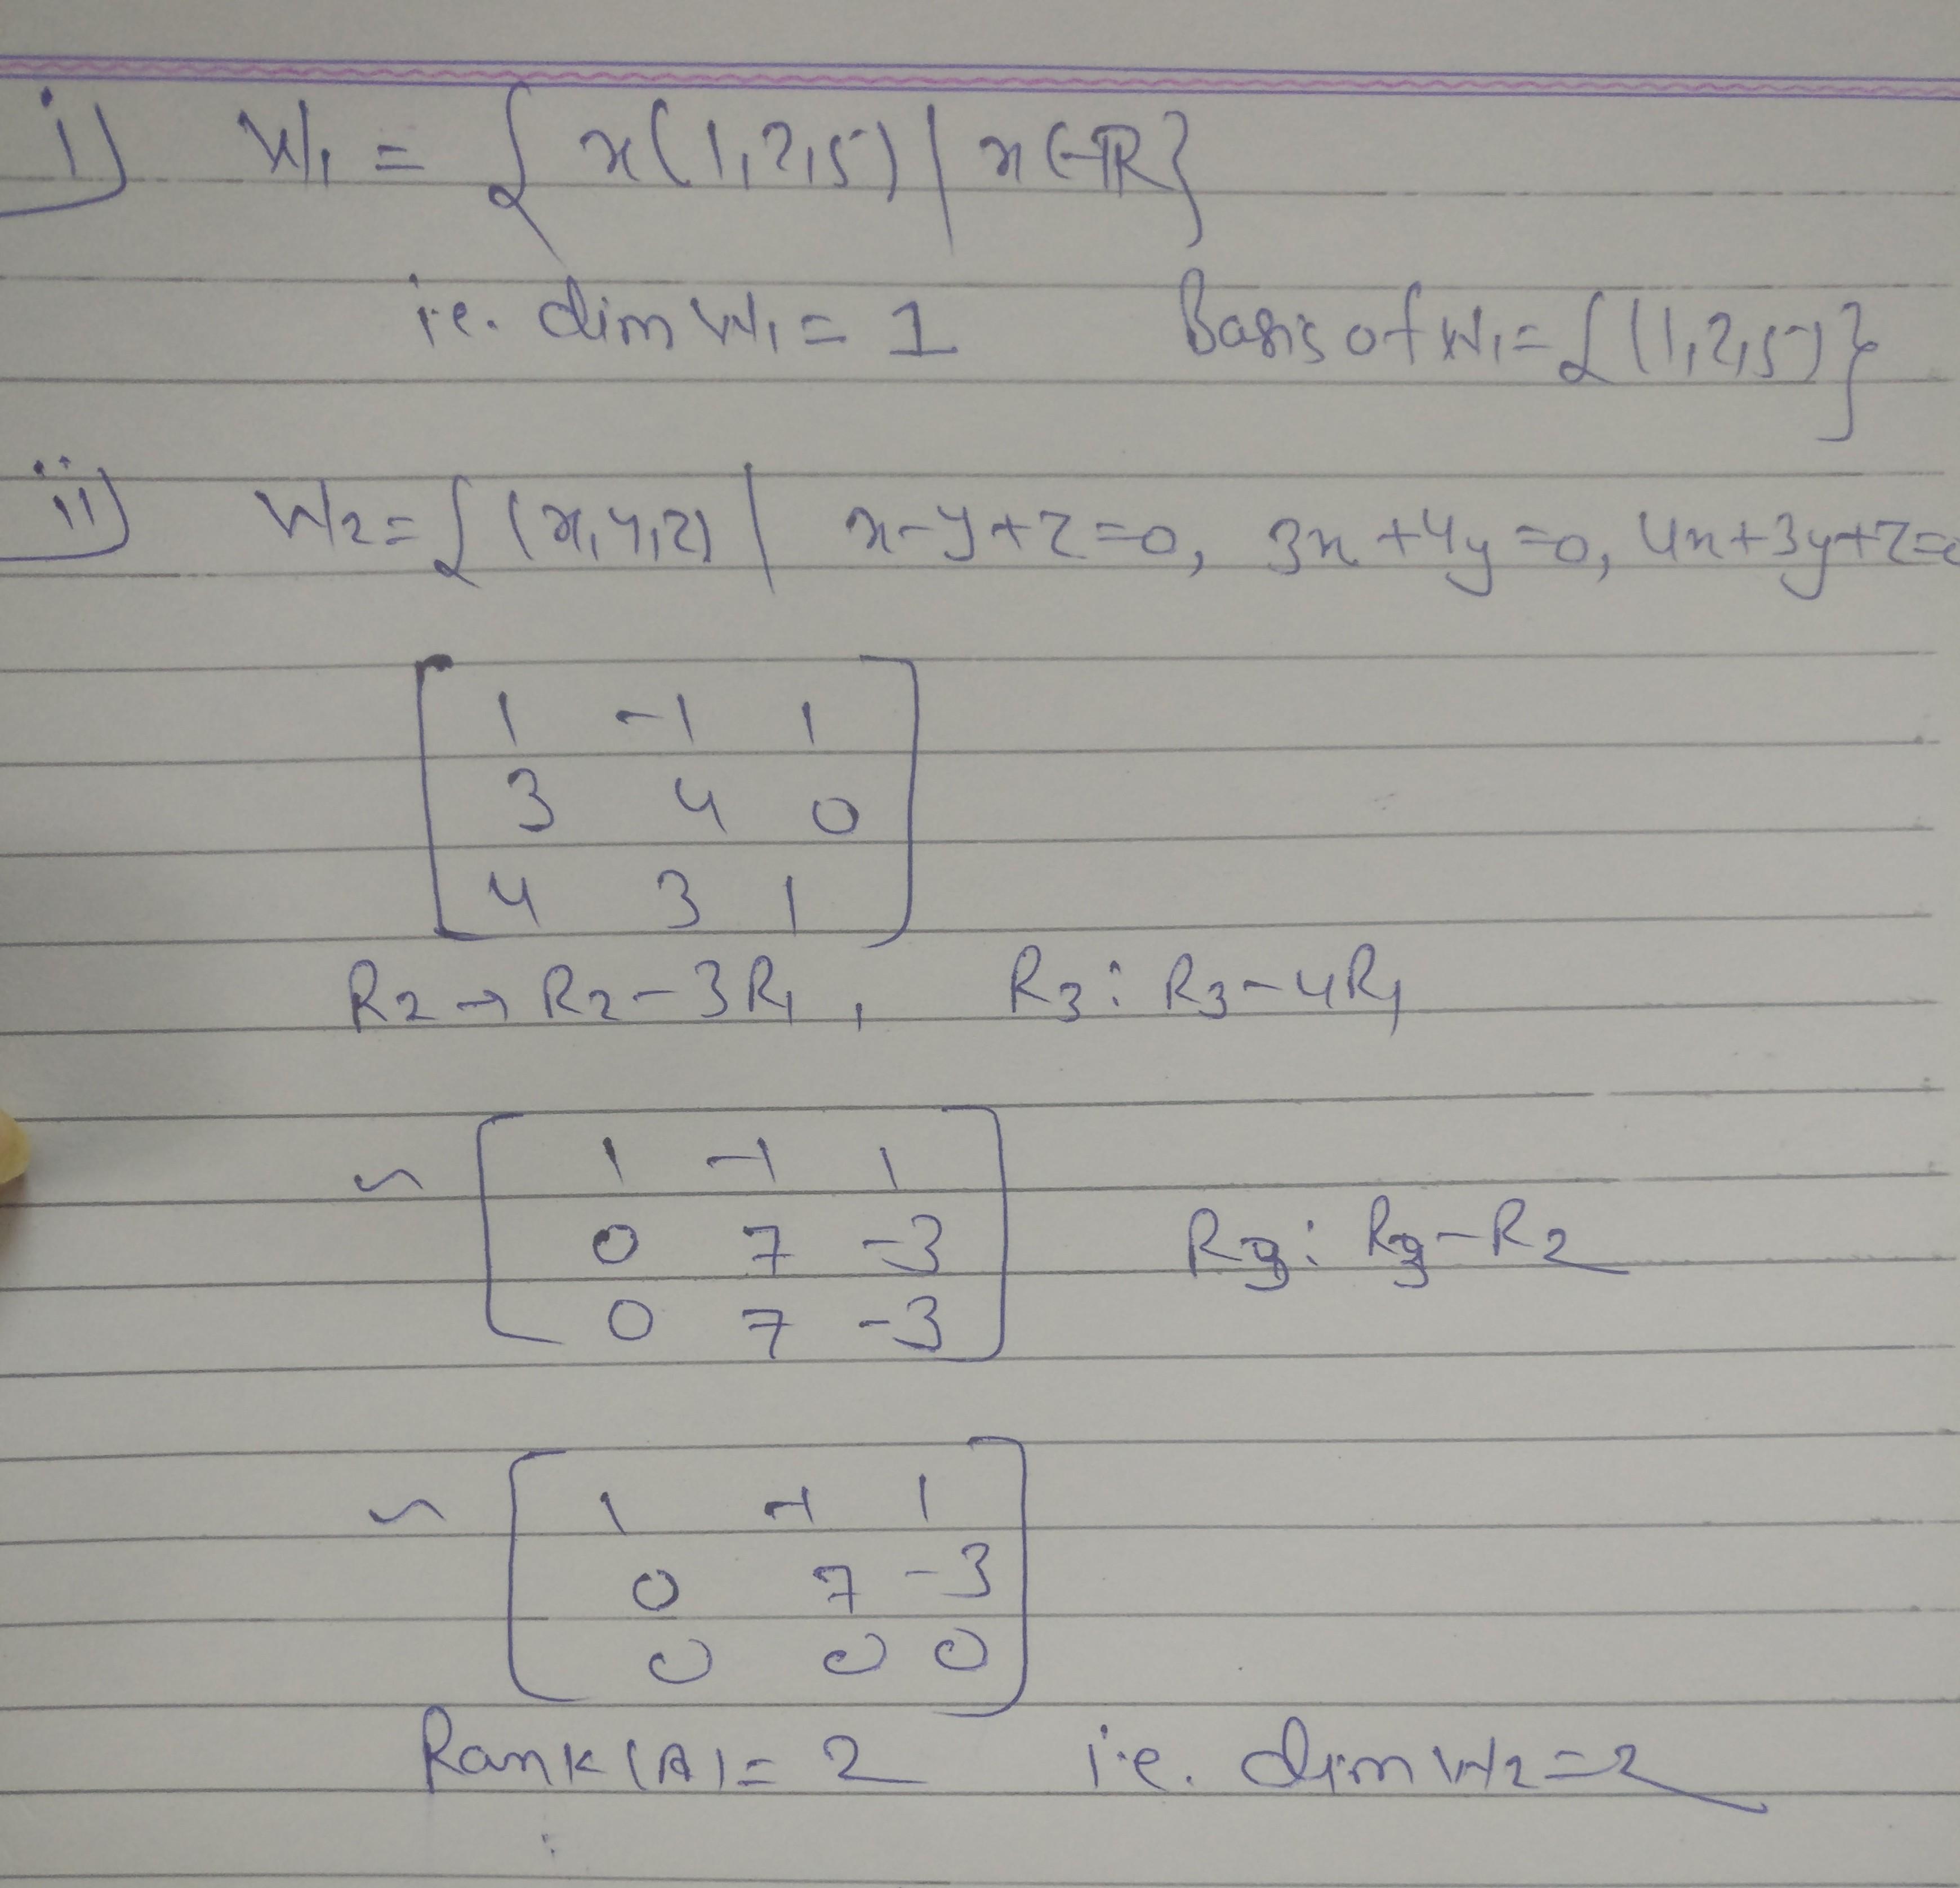 i) W₁ = { x(1,2,5) | x ∈ ℝ}
i.e. dim W₁ = 1 Basis of W₁ = {(1,2,5)}
ii) W₂ = { (x,y,z) | x-y+z=0, 3x+4y=0, 4x+3y+z=0
1 -1 1
3 4 0
4 3 1
R₂ → R₂ - 3R₁ , R₃ : R₃ - 4R₁
~ 1 -1 1
0 7 -3 R₃ : R₃ - R₂
0 7 -3
~ 1 -1 1
0 7 -3
0 0 0
Rank (A) = 2 i.e. dim W₂ = 2